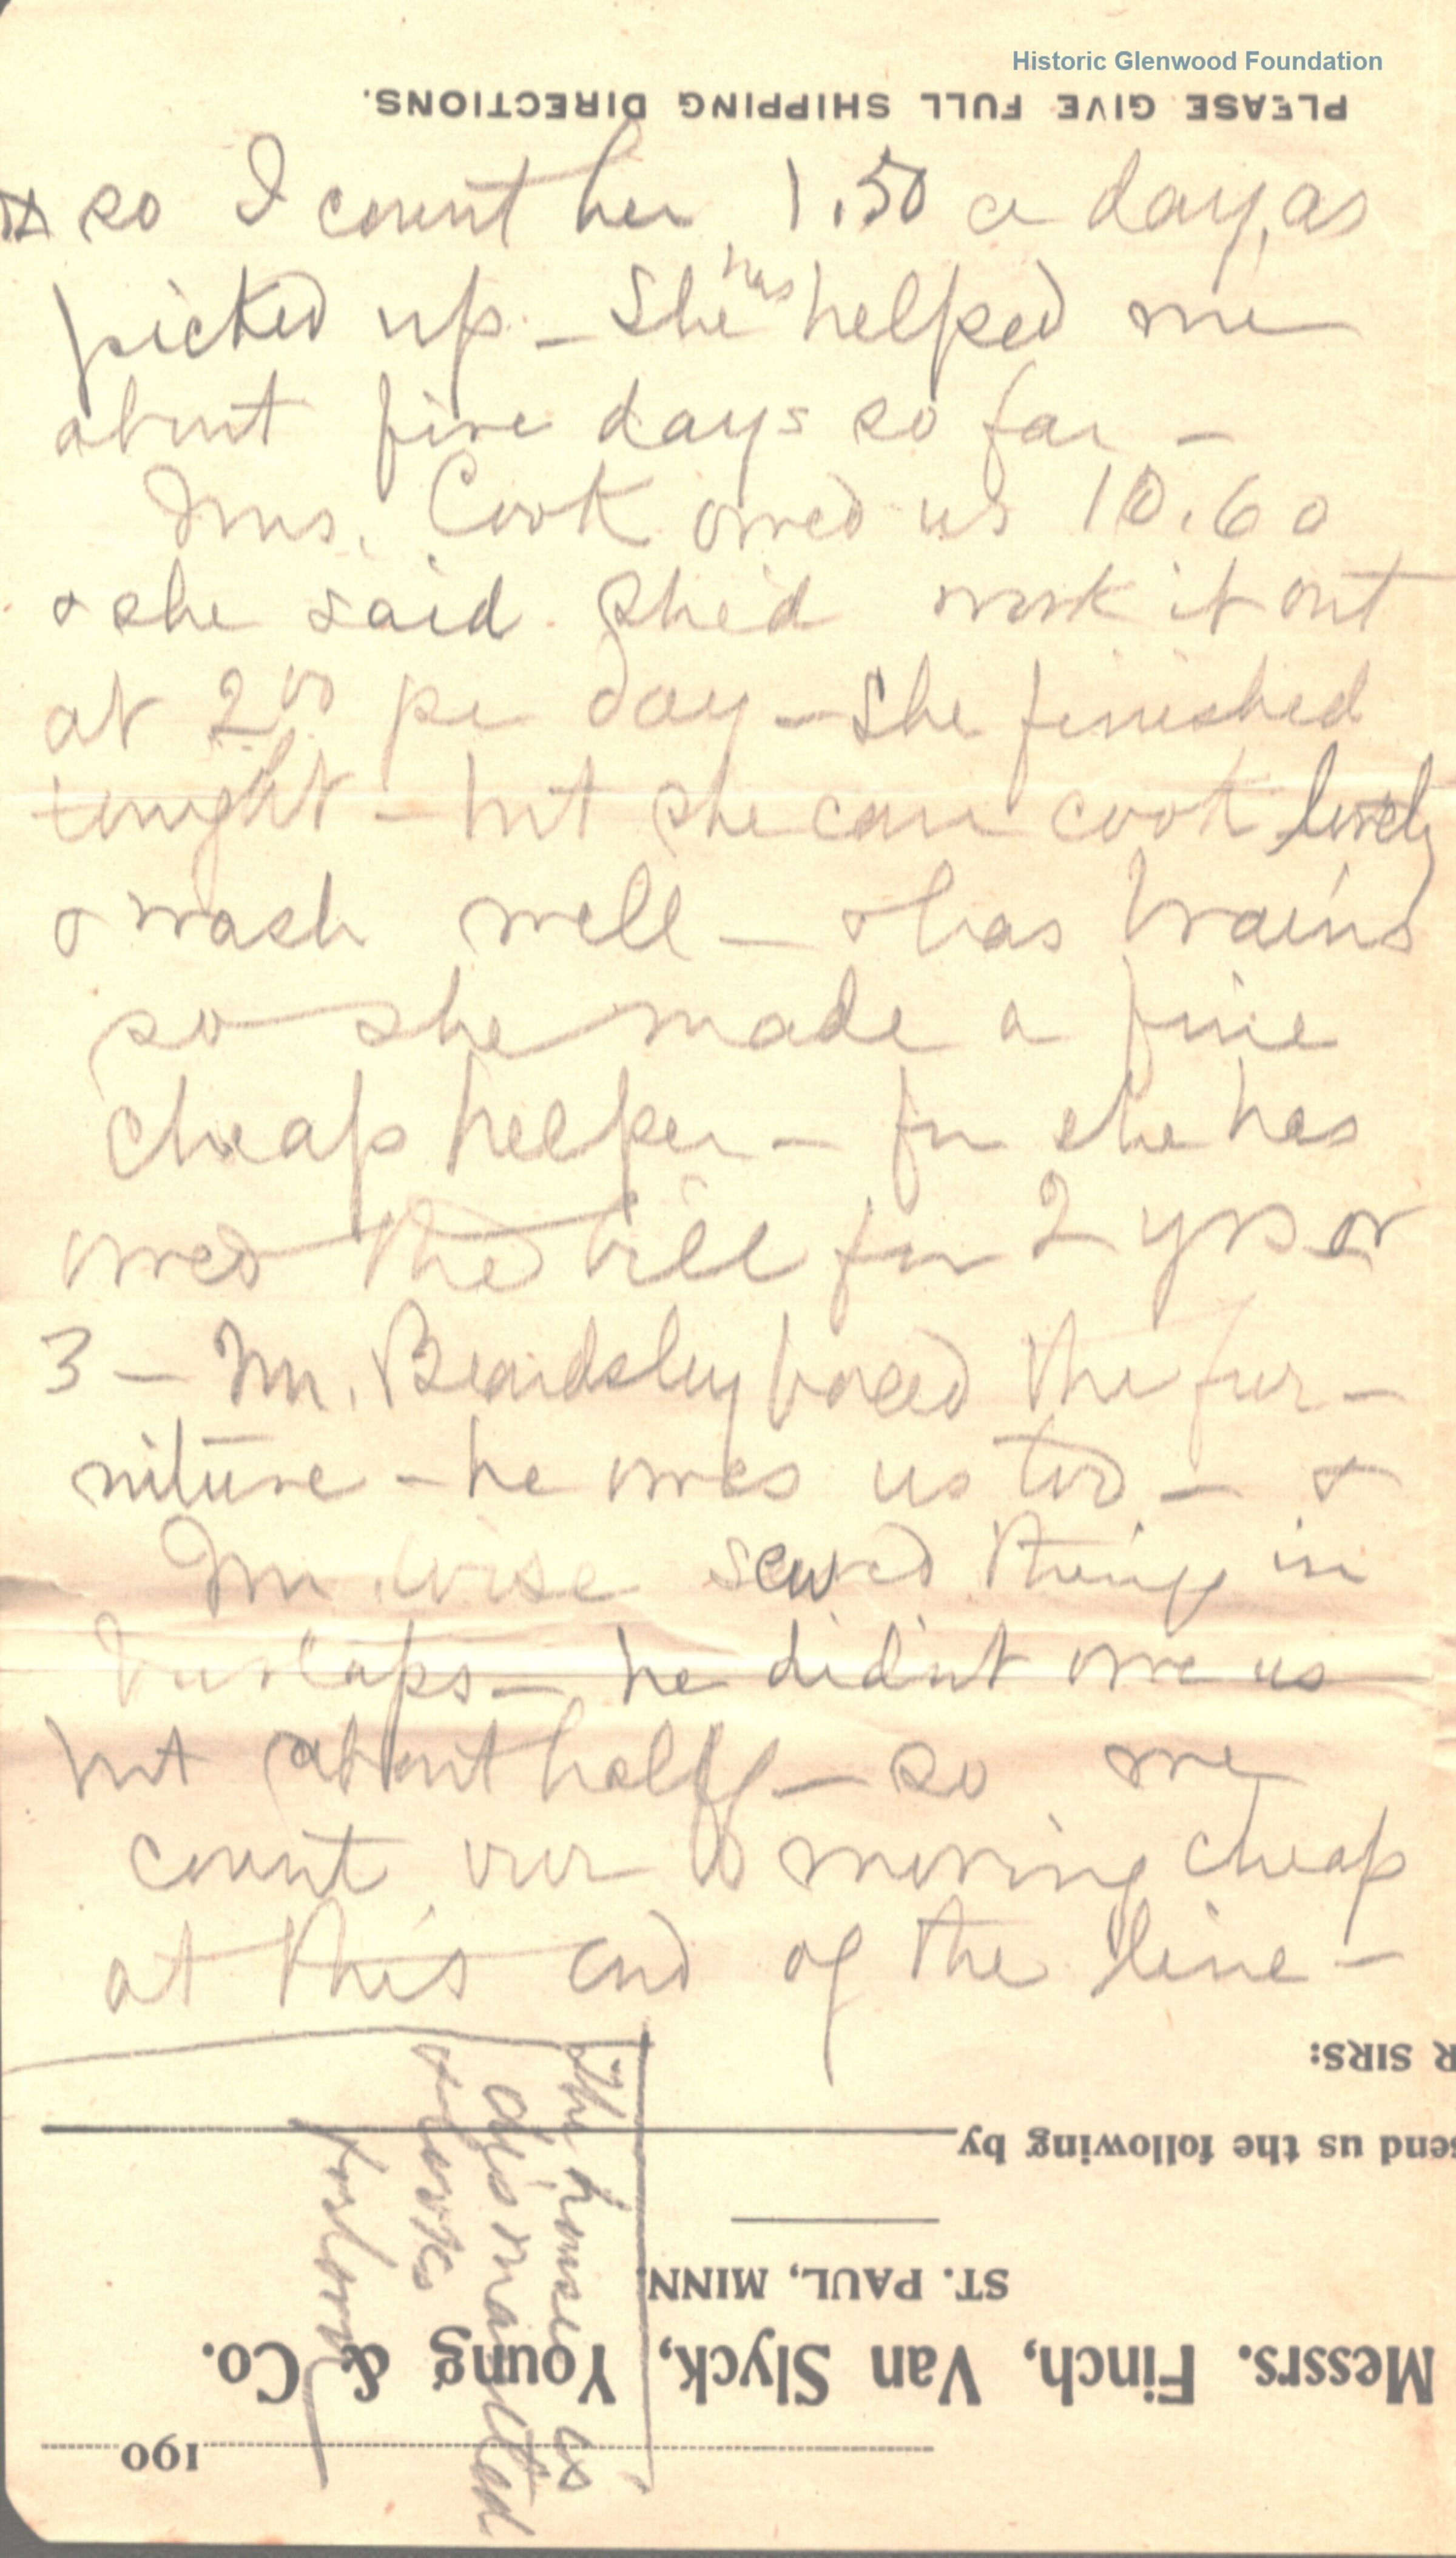 Historic Glenwood Foundation
PLEASE GIVE FULL SHIPPING DIRECTIONS.
so I count her 1.50 a day, as
picked up - She has helped me
about five days so far -
Mrs. Cook owed us 10.60
& she said she'd work it out
at 2.00 per day - She finished
tonight - but she can cook lovely
& wash well - & has brains
so she made a fine
cheap helper - for she has
owed the bill for 2 yrs or
3 - Mr. Beardsley boxed the fur-
niture - he owes us too - &
Mr. Wise sewed things in
burlaps - he didn't owe us
but about half - so we
count our moving cheap
at this end of the line -
The house is
dismantled
& looks
forlorn
R SIRS:
send us the following by
ST. PAUL, MINN.
Messrs. Finch, Van Slyck, Young & Co.
190